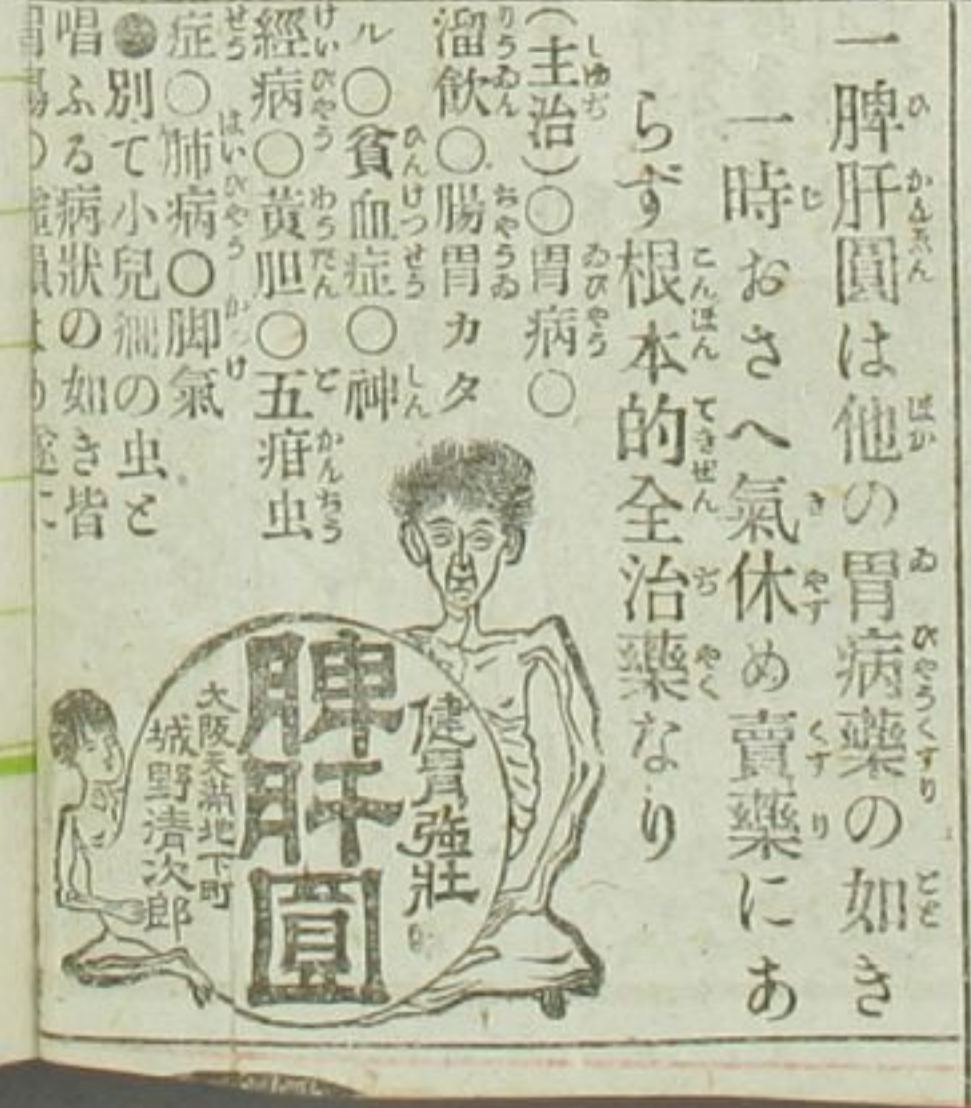 一脾肝圓は他の胃病藥の如き
一時おさへ氣休め賣藥にあ
らず根本的全治藥なり
(主治)○胃病○
溜飲○腸胃カタ
ル○貧血症○神
經病○黄胆○五疳虫
症○肺病○脚氣
別て小兒の虫と
唱ふる病狀の如き皆
健胃強壯
脾肝圓
大阪天滿地下町
城野清次郎